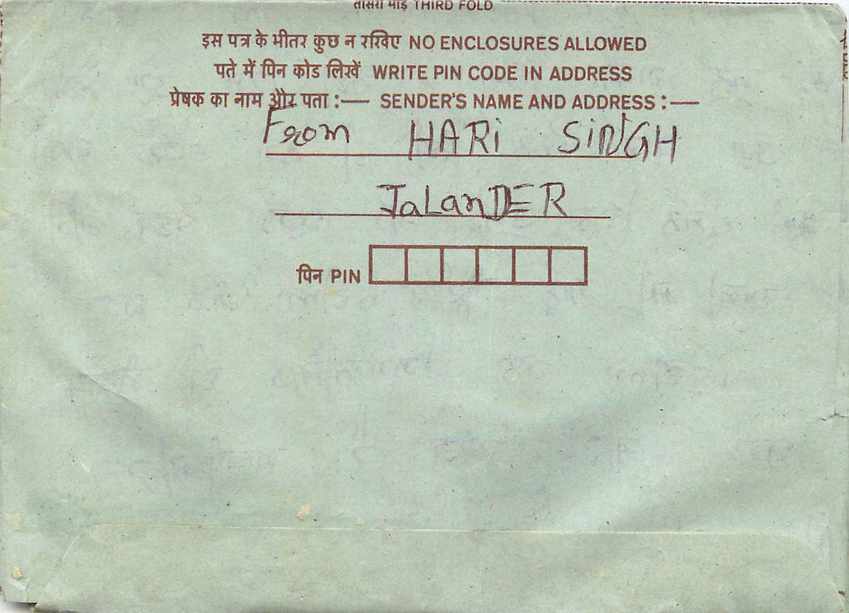 तीसरा मोड़ THIRD FOLD
इस पत्र के भीतर कुछ न रखिए NO ENCLOSURES ALLOWED
पते में पिन कोड लिखें WRITE PIN CODE IN ADDRESS
प्रेषक का नाम और पता :— SENDER'S NAME AND ADDRESS :—
From HARi SiNGH
JaLanDER
पिन PIN